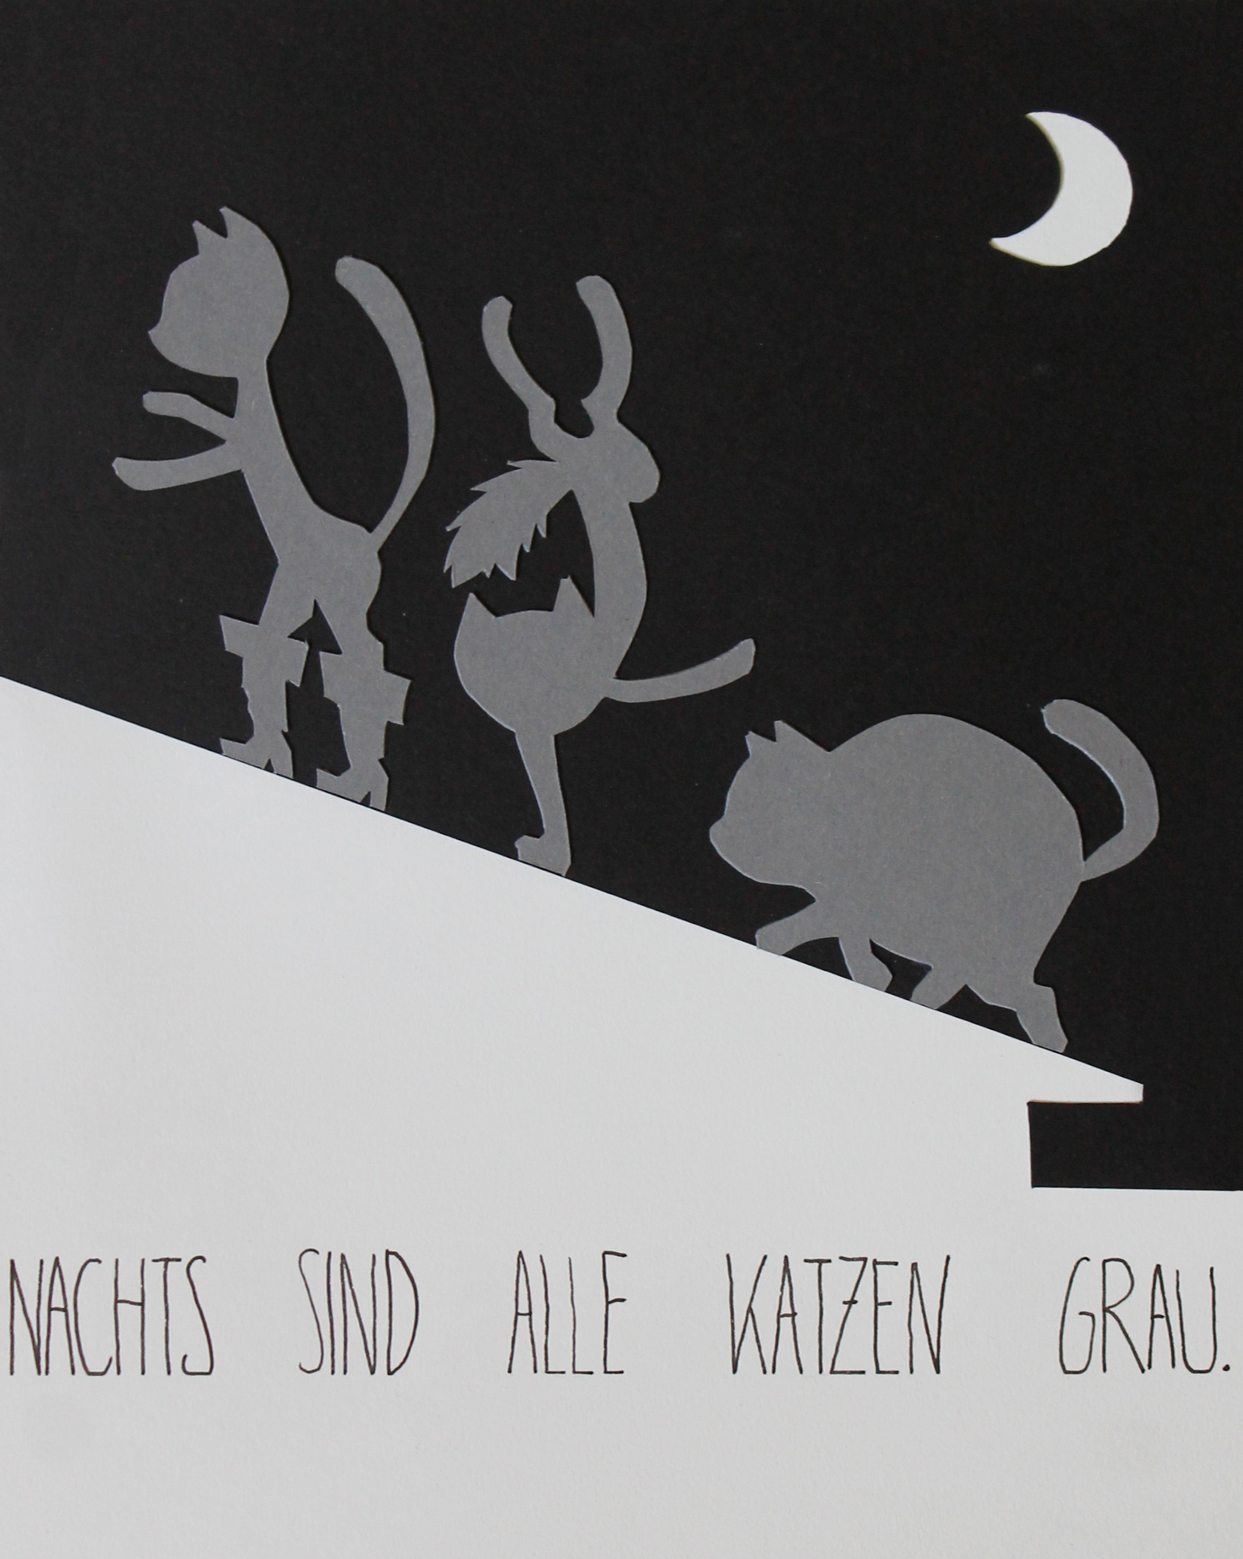 NACHTS SIND ALLE KATZEN GRAU.